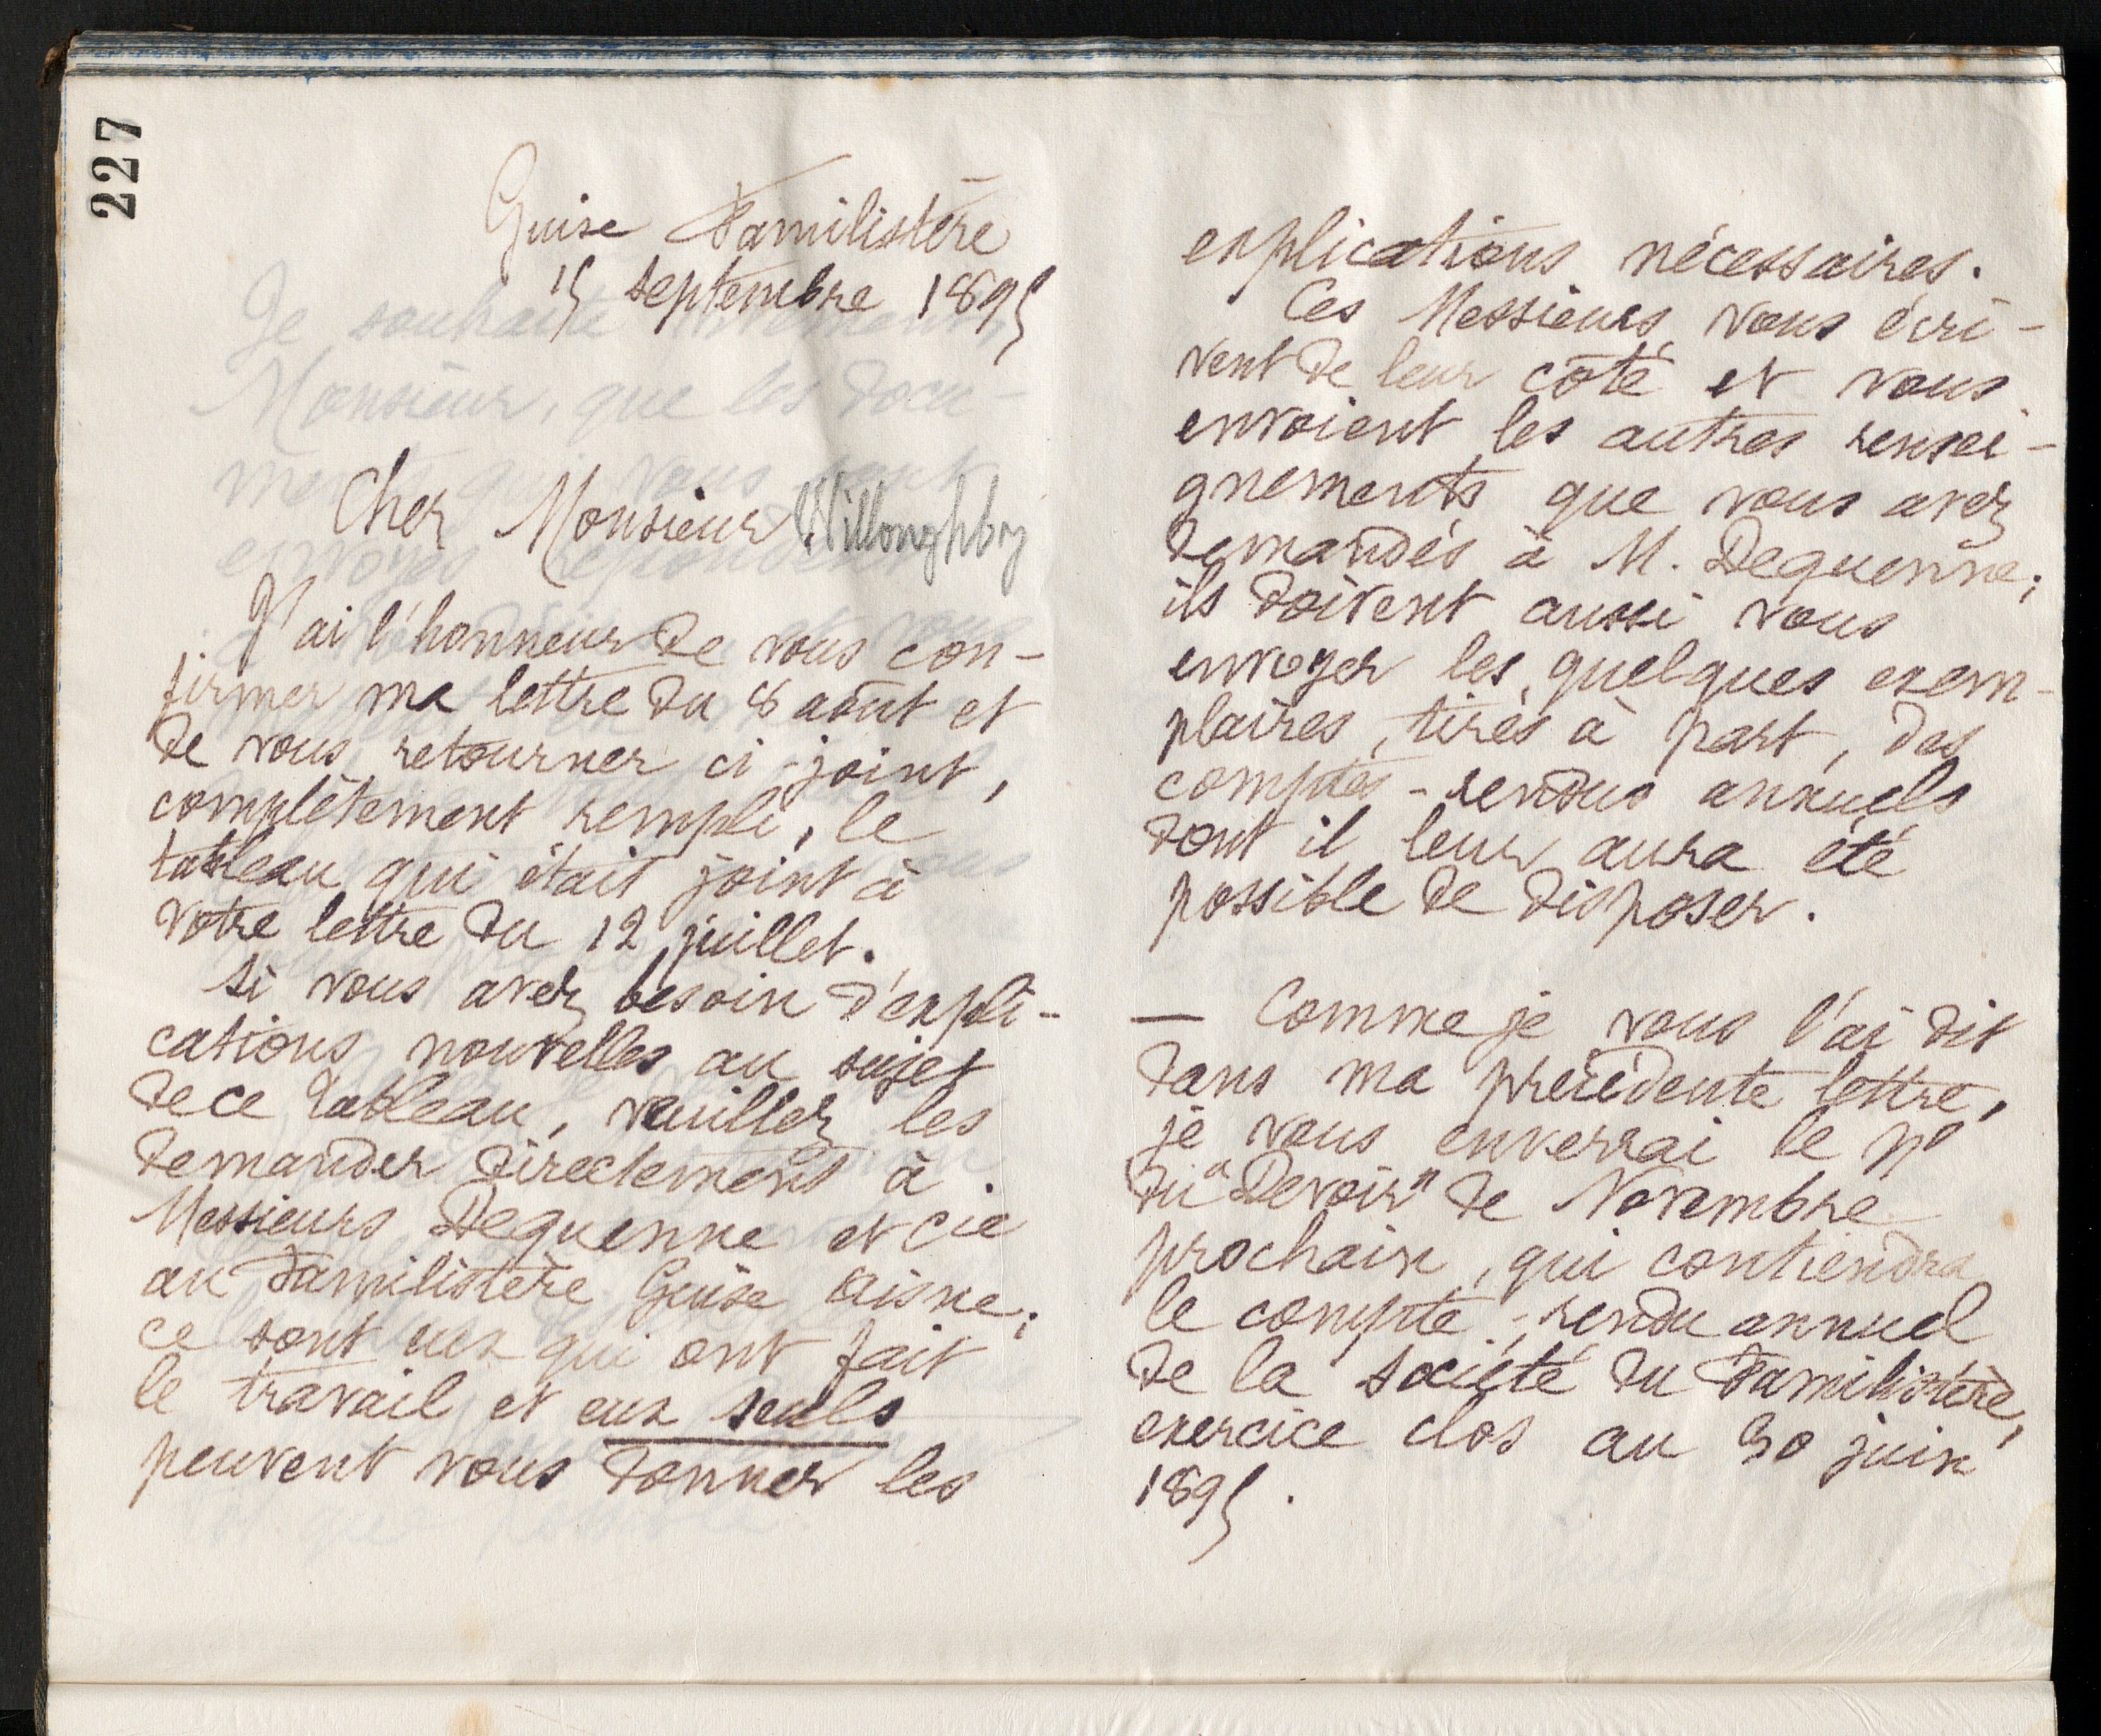 227
Guise Familistère
15 septembre 1895
Cher Monsieur Willoughby
J'ai l'honneur de vous con-
firmer ma lettre du 8 août et
de vous retourner ci-joint,
complètement rempli, le
tableau qui était joint à
votre lettre du 12 juillet.
Si vous avez besoin d'expli-
cations nouvelles au sujet
de ce tableau, veuillez les
demander directement à
Messieurs Dequenne et Cie
au Familistère Guise Aisne;
ce sont eux qui ont fait
le travail et eux seuls
peuvent vous donner les
explications nécessaires.
Ces Messieurs vous écri-
vent de leur côté et vous
envoient les autres rensei-
gnements que vous avez
demandés à M. Dequenne;
ils doivent aussi vous
envoyer les quelques exem-
plaires, tirés à part, des
comptes-rendus annuels
dont il leur aura été
possible de disposer.
— Comme je vous l'ai dit
dans ma précédente lettre,
je vous enverrai le No
du "Devoir" de Novembre
prochain, qui contiendra
le compte-rendu annuel
de la Société du Familistère,
exercice clos au 30 juin
1895.